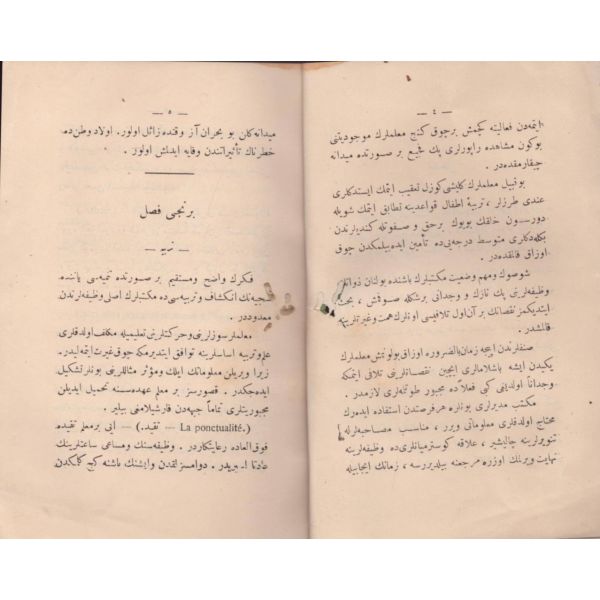 — ٤ —
ایتمه‌دن فعالیته کچمش برچوق کنج معلملرك موجودیتنی
بوکون مشاهده راپورلری پك فجیع بر صورتده میدانه
چیقارمقده‌در .
بوقبیل معلملرك کلیشی کوزل تعقیب ایتمك ایستدکلری
عندی طرزلر ، تربیهٔ اطفال قواعدینه تطابق ایتمك شویله
دورسون خلقك بویوك برحق و صفوتله کندیلرندن
بکله‌دکلری متوسط درجه‌یی ده تأمین ایده‌بیلمکدن چوق
اوزاق قالمقده‌در .
شوصوك ومهم وضعیت مکتبلرك باشنده بولنان ذواتك
وظیفه‌لرینی پك نازك و وجدانی برشکله صوقمش ، بحث
ایتدیکمز نقصانك بر آن‌اول تلافیسی اونلرك همت وغیرتلرینه
قالمشدر .
صنفلرندن ایجه زمان بالضروره اوزاق بولونمش معلملرك
یکیدن ایشه باشلامالری ایچین نقصانلرینی تلافی ایتمکه
وجداناً اولدیغی کبی فعلاً ده مجبور طوتملری لازمدر .
مکتب مدیرلری بونلره هرفرصتدن استفاده ایده‌رك
محتاج اولدقلری معلوماتی ویرر ، مناسب مصاحبه‌لرله
تنویرلرینه چالیشیر ، علاقه کوسترمیانلری ده وظیفه‌لرینه
نهایت ویرلمك اوزره مرجعنه بیلدیررسه ، زمانك ایجابیله
— ٥ —
میدانه‌کلن بو بحران آز وقتده زائل اولور . اولاد وطن ده
خطرناك تأثیراتندن وقایه ایدلمش اولور .
برنجی فصل
— تربیه —
فکرك واضح ومستقیم بر صورتده تنمیه‌سی یاننده
سجیه‌نك انکشاف وتربیه‌سی ده مکتبلرك اصلی وظیفه‌لرندن
معدوددر .
معلملر سوزلرینی وحرکتلرینی تعلیمیله مکلف اولدقلری
علم وتربیه اساسلرینه توافق ایتدیرمکه چوق غیرت ایتمه‌لیدر.
زیرا ویریلن معلوماتك ایلك ومؤثر مثاللرینی بونلر تشکیل
ایده‌جکدر . قصورسز بر معلم عهده‌سنه تحمیل ایدیلن
مجبوریتلری تماماً جیهه‌دن قارشیلامغی بیلیر .
(La ponctualité. — تقید .) — ایی بر معلم تقیده
فوق‌العاده رعایتکاردر . وظیفه‌سنك ومساعی ساعتلرینك
عادتا اسیریدر . دوامسزلقدن وایشنك باشنه کچ کلمکدن